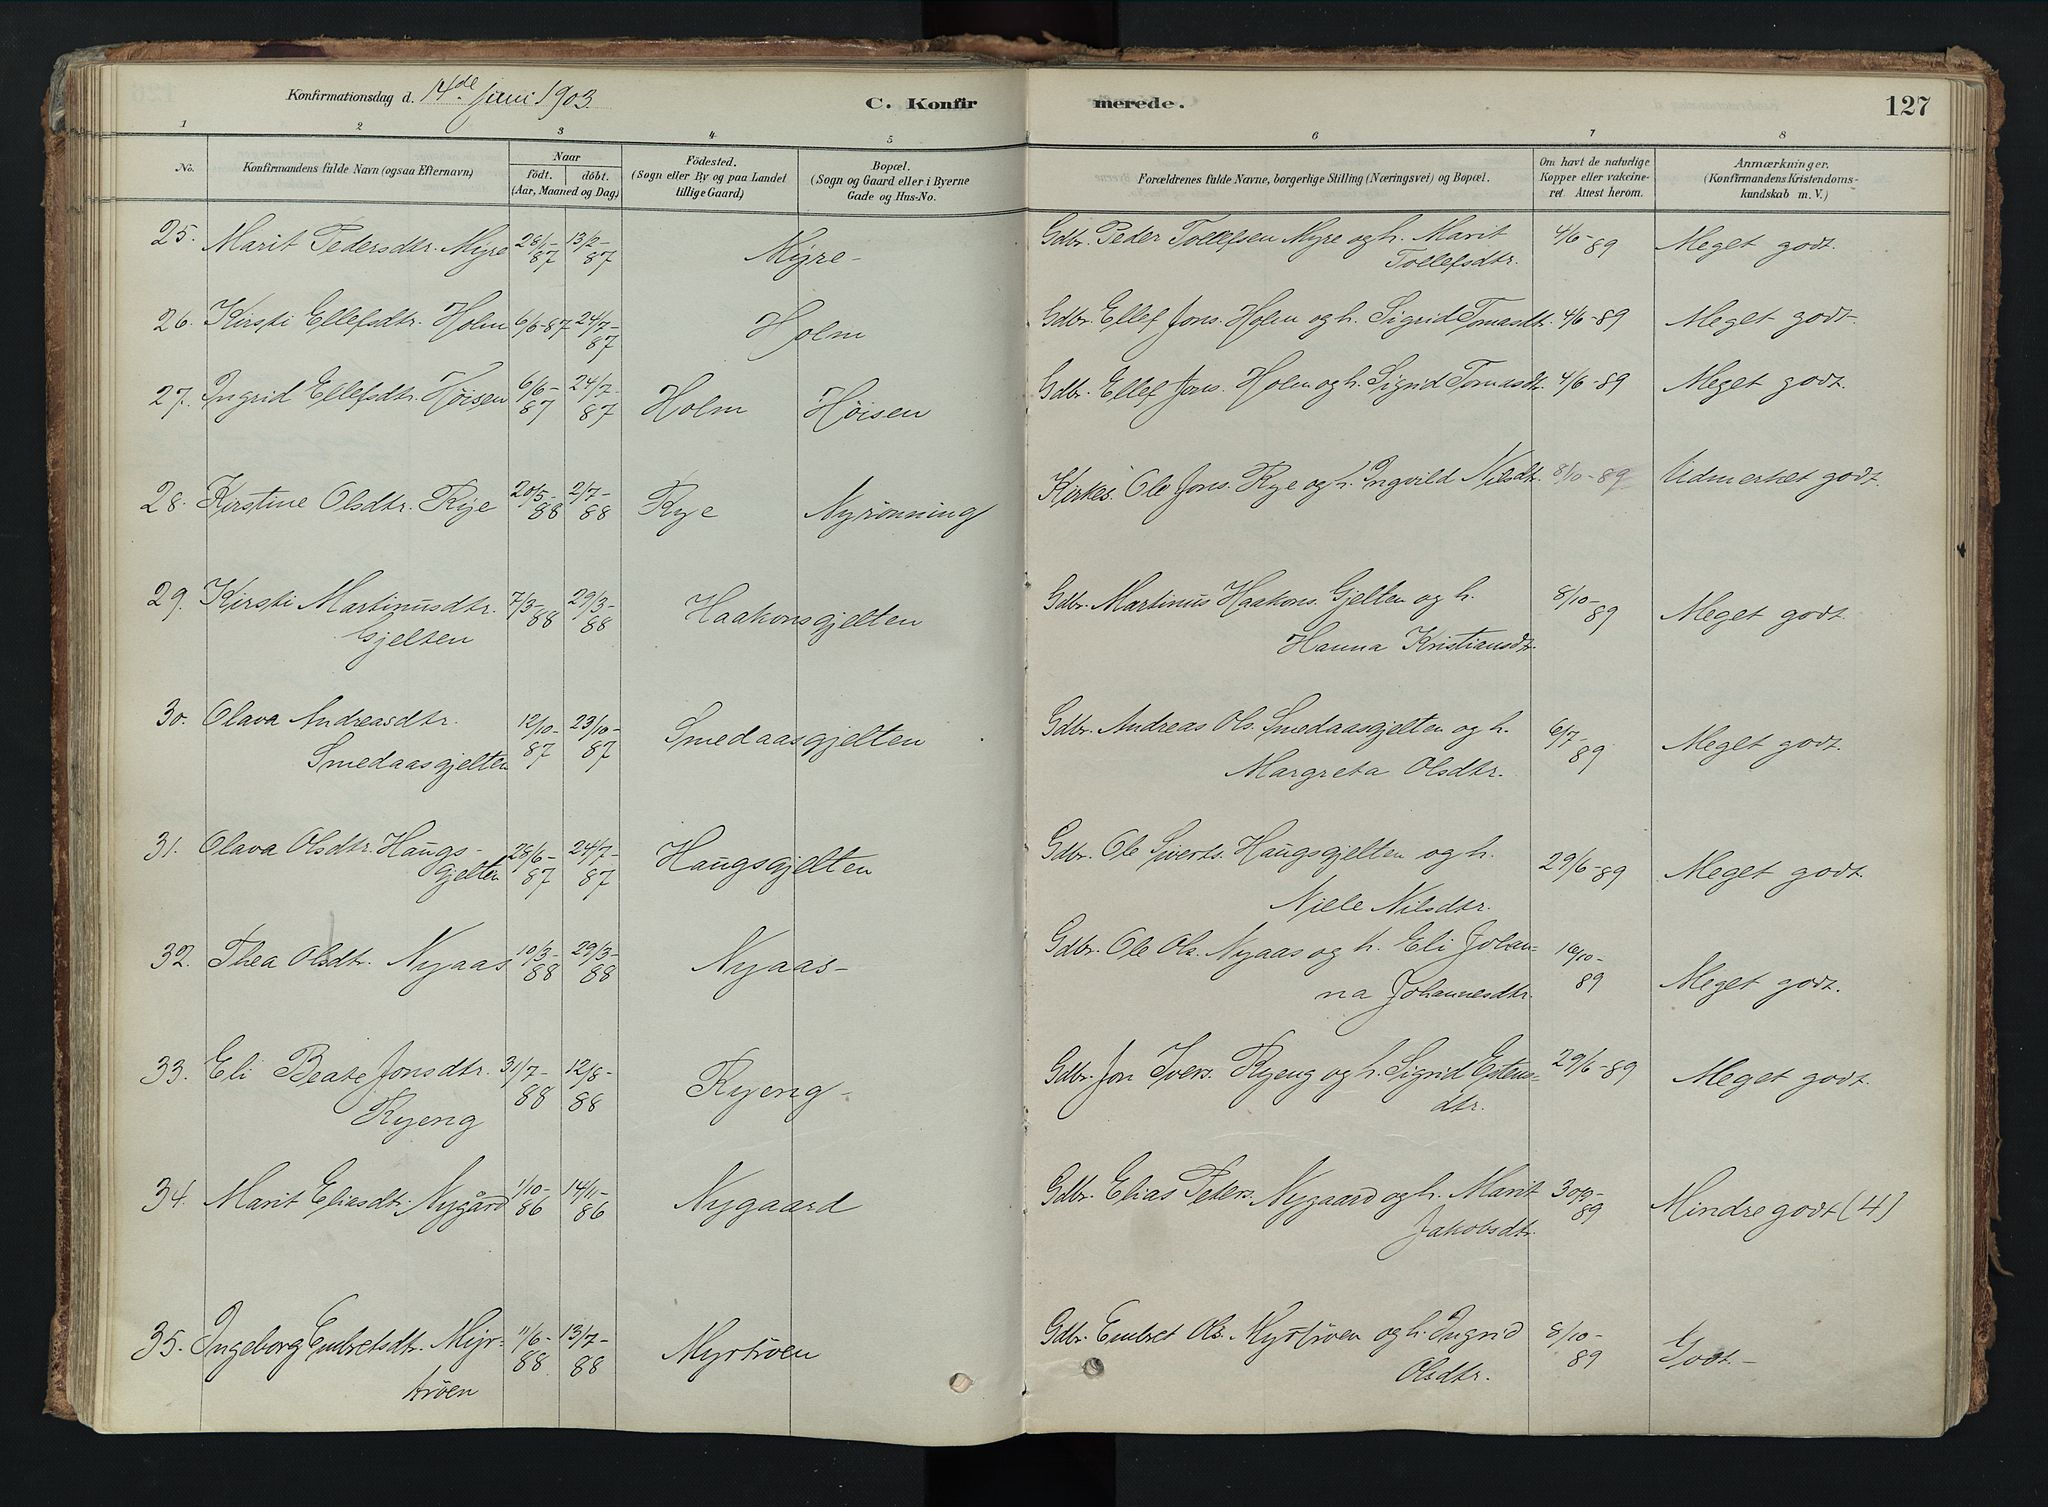 Konfirmationsdag d. 14de juni 1903
C. Konfirmerede.
127
1 2 3 4 5 6 7 8
No. Konfirmandens fulde Navn (ogsaa Efternavn) Naar født. døbt. (Aar, Maaned og Dag) Fødested. (Sogn eller By og paa Landet tillige Gaard) Bopæl. (Sogn og Gaard eller i Byerne Gade og Hus-No. Forældrenes fulde Navne, borgerlige Stilling (Næringsvei) og Bopæl. Om havt de naturlige Kopper eller vakcineret. Attest herom. Anmærkninger. (Konfirmandens Kristendomskundskab m. V.)
25. Marit Pedersdtr. Myre 28/1-87 13/2-87 Myre- Gdbr. Peder Tollefsen Myre og h. Marit Tollefsdtr. 4/6-89 Meget godt.
26. Kirsti Ellefsdtr. Holm 6/6-87 24/7-87 Holm Gdbr. Ellef Jons. Holm og h. Sigrid Tomasdtr. 4/6-89 Meget godt.
27. Ingrid Ellefsdtr. Høisen 6/6-87 24/7-87 Holm Høisen Gdbr. Ellef Jons. Holm og h. Sigrid Tomasdtr. 4/6-89 Meget godt.
28. Kirstine Olsdtr. Rye 20/5-88 2/7-88 Rye Nyrønning Kirkes. Ole Jons. Rye og h. Ingvild Nilsdtr. 8/10-89 Udmerket godt.
29. Kirsti Martinusdtr. Gjelten 7/3-88 29/3-88 Haakonsgjelten Gdbr. Martinus Haakons. Gjelten og h. Hanna Kristiansdtr. 8/10-89 Meget godt.
30. Olava Andreasdtr. Smedaasgjelten 12/10-87 23/10-87 Smedaasgjelten Gdbr. Andreas Ols. Smedaasgjelten og h. Margreta Olsdtr. 6/7-89 Meget godt.
31. Olava Olsdtr. Haugsgjelten 28/6-87 24/7-87 Haugsgjelten Gdbr. Ole Siverts. Haugsgjelten og h. Niele Nilsdtr. 29/6-89 Meget godt.
32. Thea Olsdtr. Nyaas 10/3-88 29/3-88 Nyaas- Gdbr. Ole Ols. Nyaas og h. Eli Johanna Johannesdtr. 16/10-89 Meget godt.
33. Eli Beate Jonsdtr. Ryeng 31/7-88 12/8-88 Ryeng- Gdbr. Jon Ivers. Ryeng og h. Sigrid Estensdtr. 29/6-89 Meget godt.
34. Marit Eliasdtr. Nygård 1/10-86 14/11-86 Nygaard Gdbr. Elias Peders. Nygaard og h. Marit Jakobsdtr. Mindre godt (4)
35. Ingeborg Embretsdtr. Myrtrøen 11/6-88 13/7-88 Myrtrøen Gdbr. Embret Ols. Myrtrøen og h. Ingrid Olsdtr. 8/10-89 Godt-